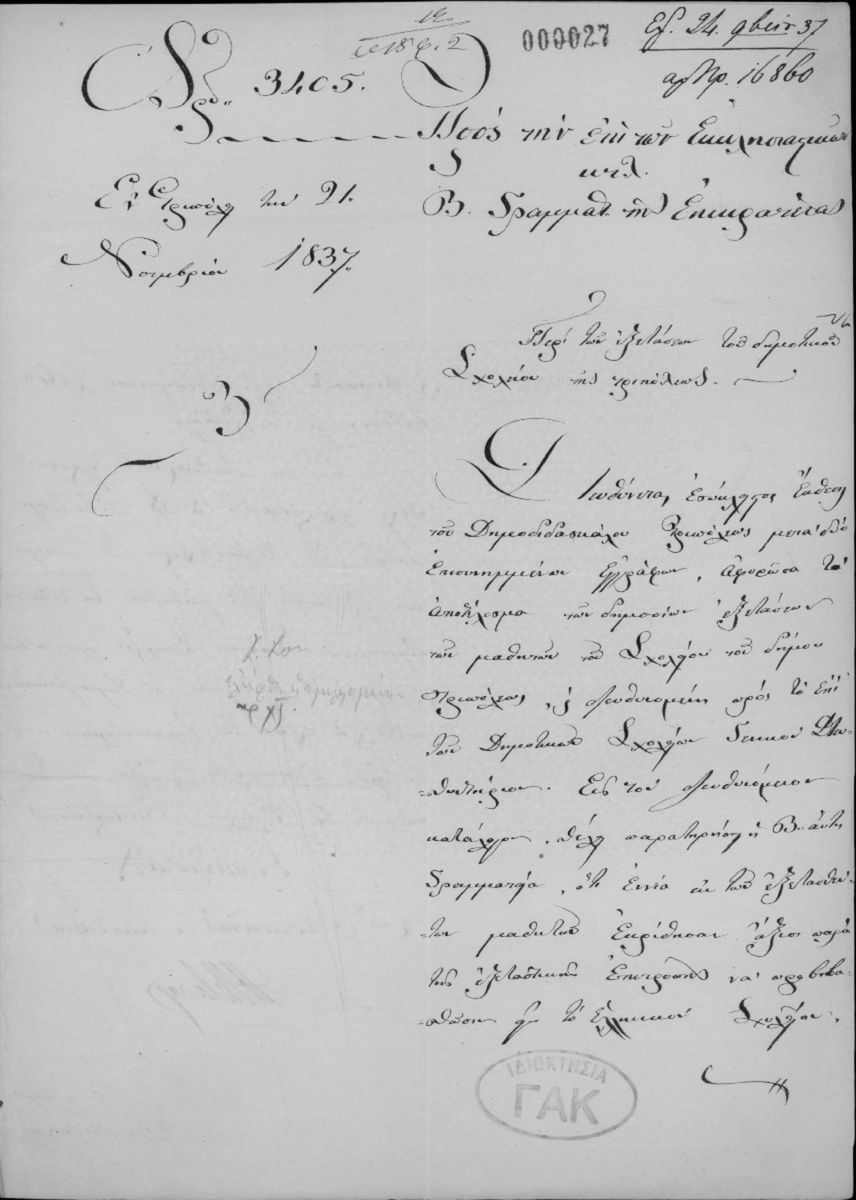 000027
Εξ. 24. 9βρίου 37
αρ Πρ. 16860
Αρ. 3405.
Πρὸς τὴν ἐπὶ τῶν Ἐκκλησιαστικῶν
κτλ.
Β. Γραμματ. τῆς Ἐπικρατείας
Ἐν Τριπόλει την 21.
Νοεμβρίου 1837.
Περὶ τῶν ἐξετάσεων τοῦ δημοτικοῦ
Σχολείου τῆς τριπόλεως.
Διευθύνεται ἐσώκλειστος ἔκθεσις
τοῦ Δημοδιδασκάλου Τριπόλεως μετὰ δύο
ἐπισυνημμένων ἐγγράφων, ἀφορῶσα τὸ
ἀποτέλεσμα τῶν δημοσίων ἐξετάσεων
τῶν μαθητῶν τοῦ Σχολείου τοῦ δήμου
Τριπόλεως, ἡ διευθυνομένη πρὸς τὸ ἐπὶ
τῶν Δημοτικῶν Σχολείων Γενικὸν Διευ-
-θυντήριον. Εἰς τὸν διευθυνόμενον
κατάλογον, θέλει παρατηρήσει ἡ Β. αὐτὴ
Γραμματεία, ὅτι ἐννέα ἐκ τῶν ἐξετασθέν-
-των μαθητῶν ἐκρίθησαν ἄξιοι παρὰ
τῆς ἐξεταστικῆς Ἐπιτροπῆς νὰ προβιβα-
-σθῶσιν εἰς τὸ Ἑλληνικὸν Σχολεῖον.
ΙΔΙΟΚΤΗΣΙΑ
ΓΑΚ